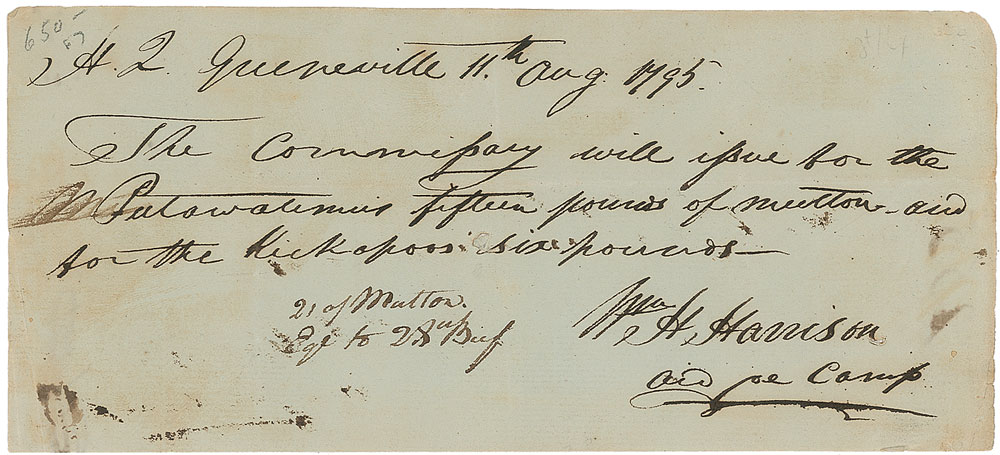 650-
H. Q. Gueneville 11.th Aug. 1795.
The Commissary will issue for the
Putawatimies fifteen pounds of mutton - and
for the Kickapoos six pounds —
21 of Mutton.
Eql to 28 Beef
Wm H. Harrison
aid de Camp